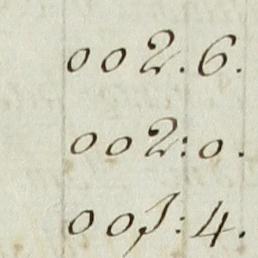 002.6.
002:0.
001:4.